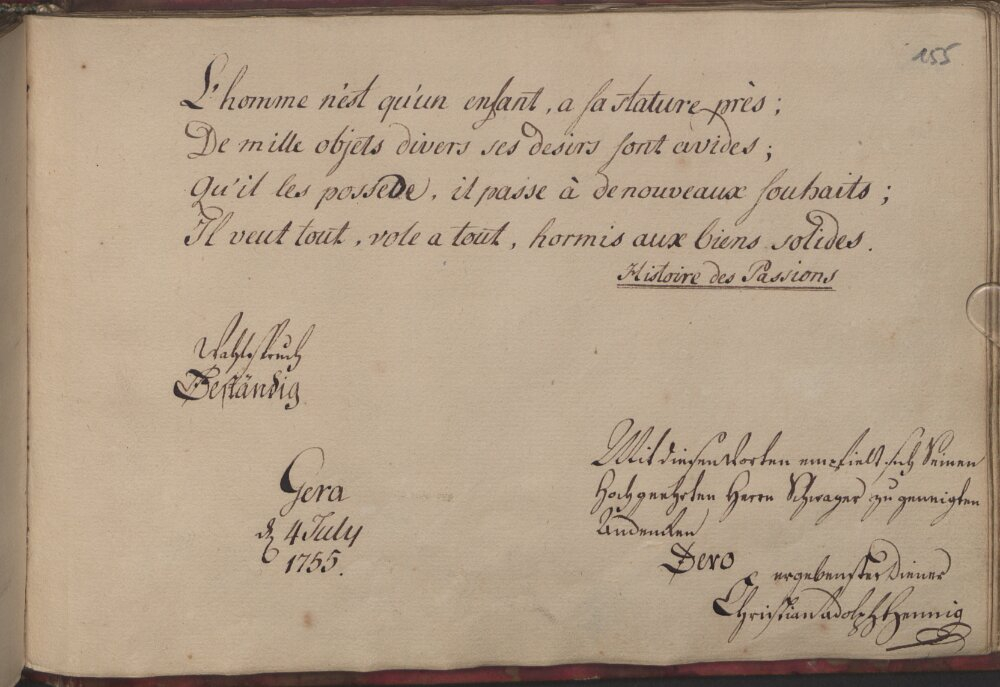 155
L'homme n'est qu'un enfant, a sa stature près;
De mille objets divers ses desirs sont avides;
Qu'il les possede, il passe à de nouveaux souhaits;
Il veut tout, vole a tout, hormis aux biens solides.
Histoire des Passions
Wahlspruch
Beständig
Gera
d. 4 July
1755.
Mit diesen Worten empfielt sich Seinen
Hochgeehrten Herrn Schwager zu geneigten
Andencken
Dero
ergebenster Diener
Christian Adolph Hennig